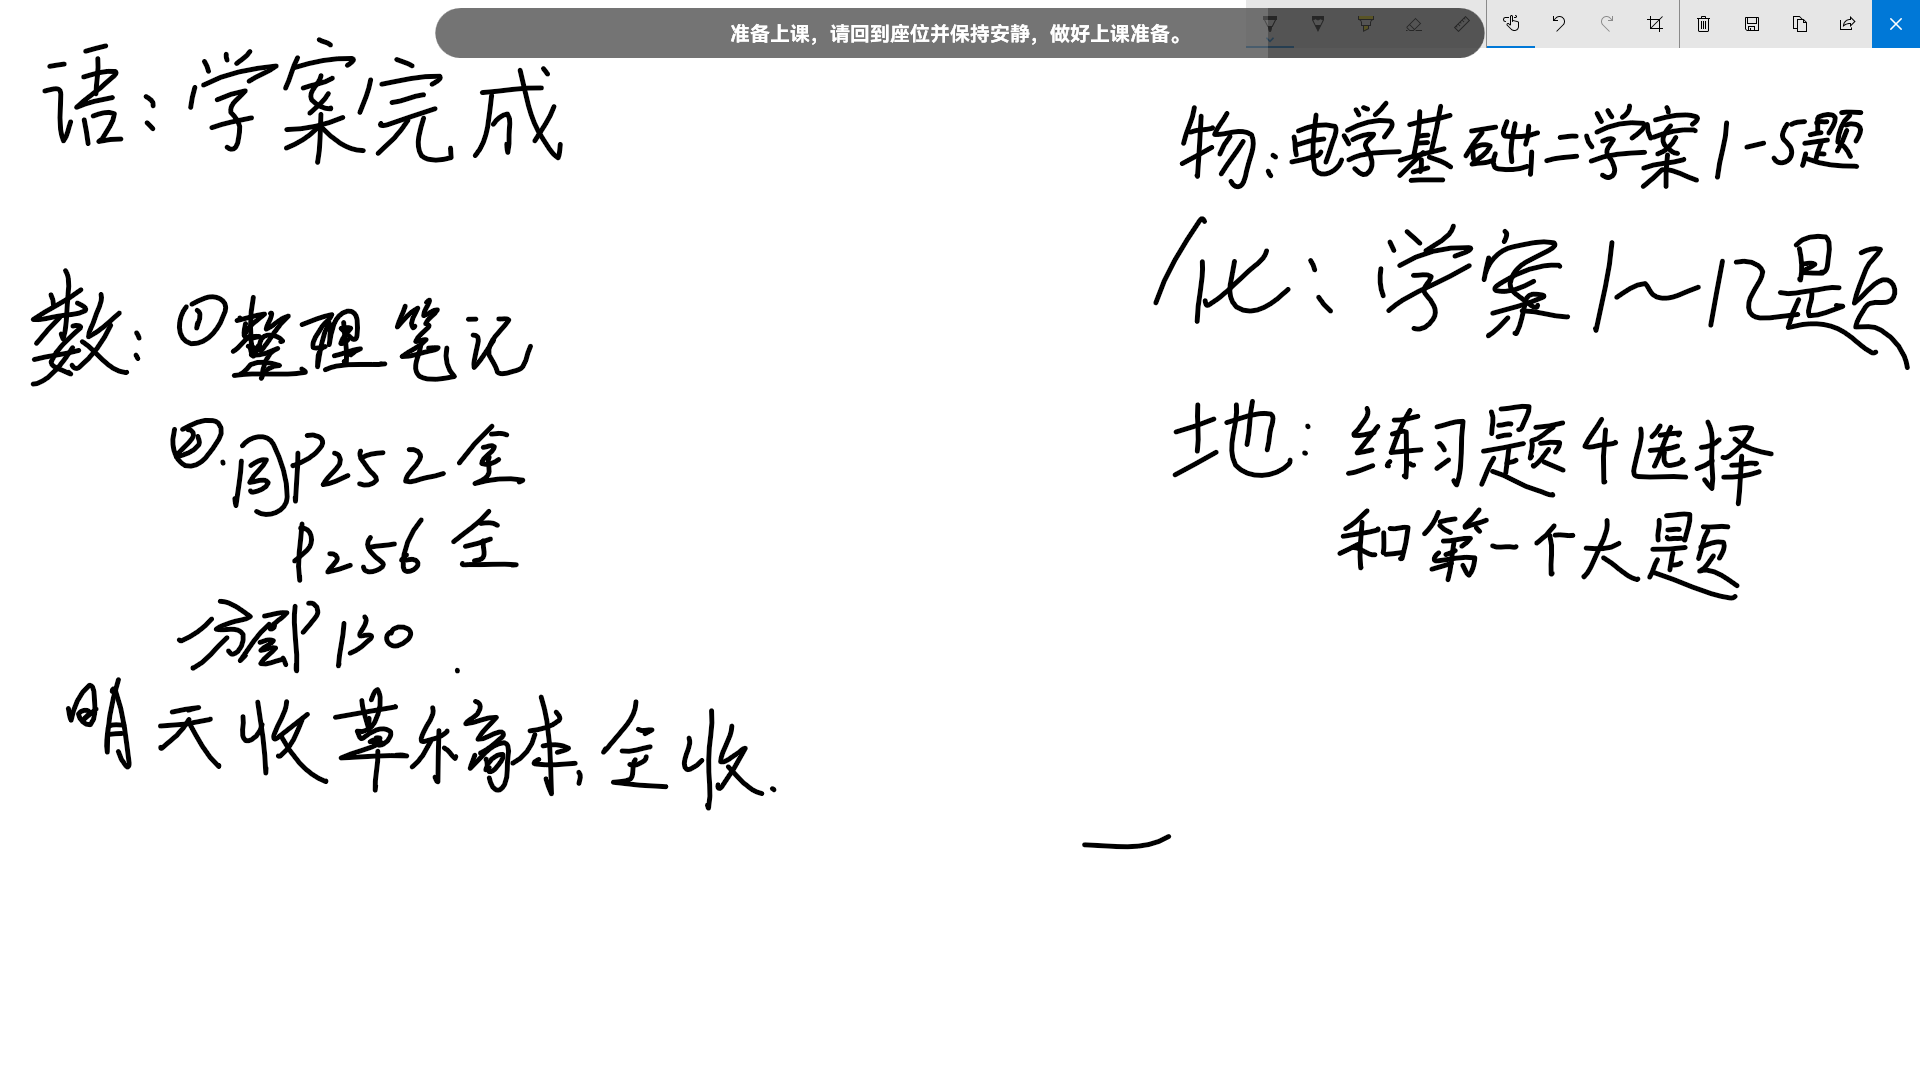 准备上课，请回到座位并保持安静，做好上课准备。
语：学案完成
数：①整理笔记
②.同P252全
P256全
分层P130
明天收草稿本,全收.
物：电学基础二学案1-5题
化：学案1～12题
地：练习题4选择
和第一个大题